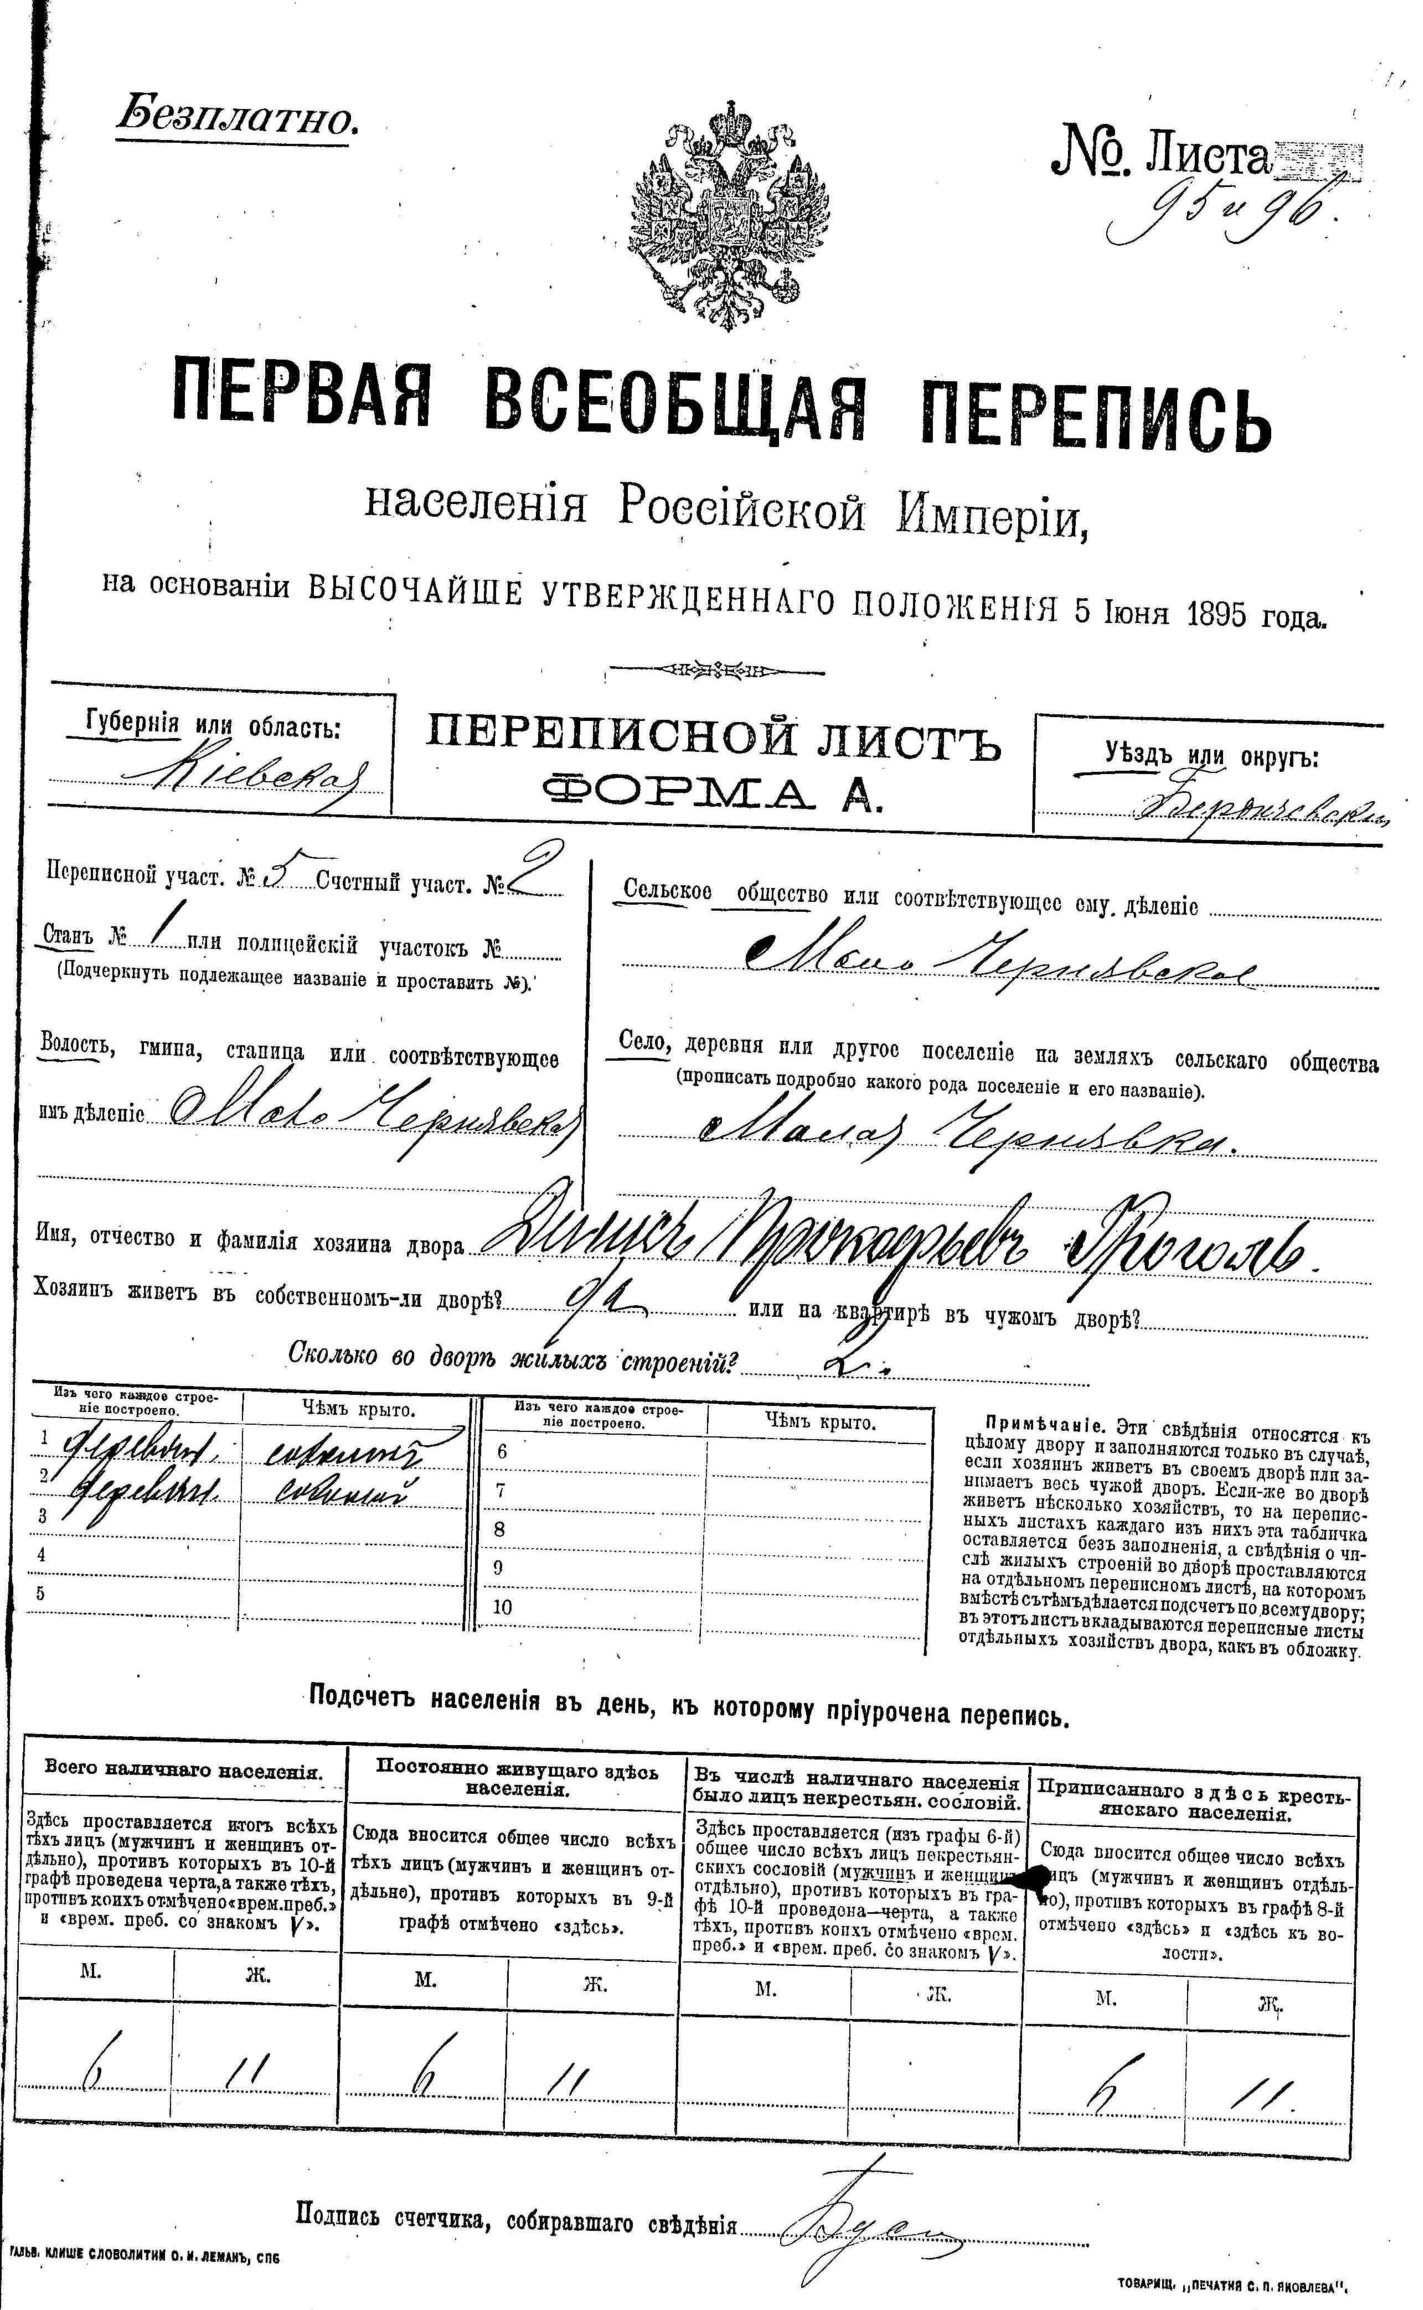 Безплатно.
№. Листа
95 и 96.
ПЕРВАЯ ВСЕОБЩАЯ ПЕРЕПИСЬ
населенія Россійской Имперіи,
на основаніи ВЫСОЧАЙШЕ УТВЕРЖДЕННАГО ПОЛОЖЕНІЯ 5 Іюня 1895 года.
Губернія или область:
Кіевская
ПЕРЕПИСНОЙ ЛИСТЪ
ФОРМА А.
Уѣздъ или округъ:
Бердичевскій
Переписной участ. № 5 Счетный участ. № 2
Станъ № 1 или полицейскій участокъ №
(Подчеркнуть подлежащее названіе и проставить №).
Волость, гмина, станица или соотвѣтствующее
имъ дѣленіе Мало Чернявская
Сельское общество или соотвѣтствующее ему дѣленіе
Мало Чернявское
Село, деревня или другое поселеніе на земляхъ сельскаго общества
(прописать подробно какого рода поселеніе и его названіе).
Малая Чернявка.
Имя, отчество и фамилія хозяина двора Денисъ Прокофьевъ
Хозяинъ живетъ въ собственномъ-ли дворѣ? да или на квартирѣ въ чужомъ дворѣ?
Сколько во дворѣ жилыхъ строеній? 2.
Изъ чего каждое строе-
ніе построено.
Чѣмъ крыто.
Изъ чего каждое строе-
ніе построено.
Чѣмъ крыто.
1 деревян. соломой 6
2 деревян. соломой 7
3 8
4 9
5 10
Примѣчаніе. Эти свѣдѣнія относятся къ
цѣлому двору и заполняются только въ случаѣ,
если хозяинъ живетъ въ своемъ дворѣ или за-
нимаетъ весь чужой дворъ. Если-же во дворѣ
живетъ нѣсколько хозяйствъ, то на перепис-
ныхъ листахъ каждаго изъ нихъ эта табличка
оставляется безъ заполненія, а свѣдѣнія о чи-
слѣ жилыхъ строеній во дворѣ проставляются
на отдѣльномъ переписномъ листѣ, на которомъ
вмѣстѣ съ тѣмъ дѣлается подсчетъ по всему двору;
въ этотъ листъ вкладываются переписные листы
отдѣльныхъ хозяйствъ двора, какъ въ обложку.
Подсчетъ населенія въ день, къ которому пріурочена перепись.
Всего наличнаго населенія.
Здѣсь проставляется итогъ всѣхъ
тѣхъ лицъ (мужчинъ и женщинъ от-
дѣльно), противъ которыхъ въ 10-й
графѣ проведена черта, а также тѣхъ,
противъ коихъ отмѣчено «врем. преб.»
и «врем. преб. со знакомъ V».
Постоянно живущаго здѣсь
населенія.
Сюда вносится общее число всѣхъ
тѣхъ лицъ (мужчинъ и женщинъ от-
дѣльно), противъ которыхъ въ 9-й
графѣ отмѣчено «здѣсь».
Въ числѣ наличнаго населенія
было лицъ некрестьян. сословій.
Здѣсь проставляется (изъ графы 6-й)
общее число всѣхъ лицъ некрестьян-
скихъ сословій (мужчинъ и женщинъ
отдѣльно), противъ которыхъ въ гра-
фѣ 10-й проведена черта, а также
тѣхъ, противъ коихъ отмѣчено «врем.
преб.» и «врем. преб. со знакомъ V».
Приписаннаго здѣсь кресть-
янскаго населенія.
Сюда вносится общее число всѣхъ
лицъ (мужчинъ и женщинъ отдѣль-
но), противъ которыхъ въ графѣ 8-й
отмѣчено «здѣсь» и «здѣсь къ во-
лости».
М. Ж. М. Ж. М. Ж. М. Ж.
6 11 6 11 6 11.
Подпись счетчика, собиравшаго свѣдѣнія
ГАЛЬВ. КЛИШЕ СЛОВОЛИТНИ О. И. ЛЕМАНЪ, СПБ
ТОВАРИЩ. „ПЕЧАТНЯ С. П. ЯКОВЛЕВА".